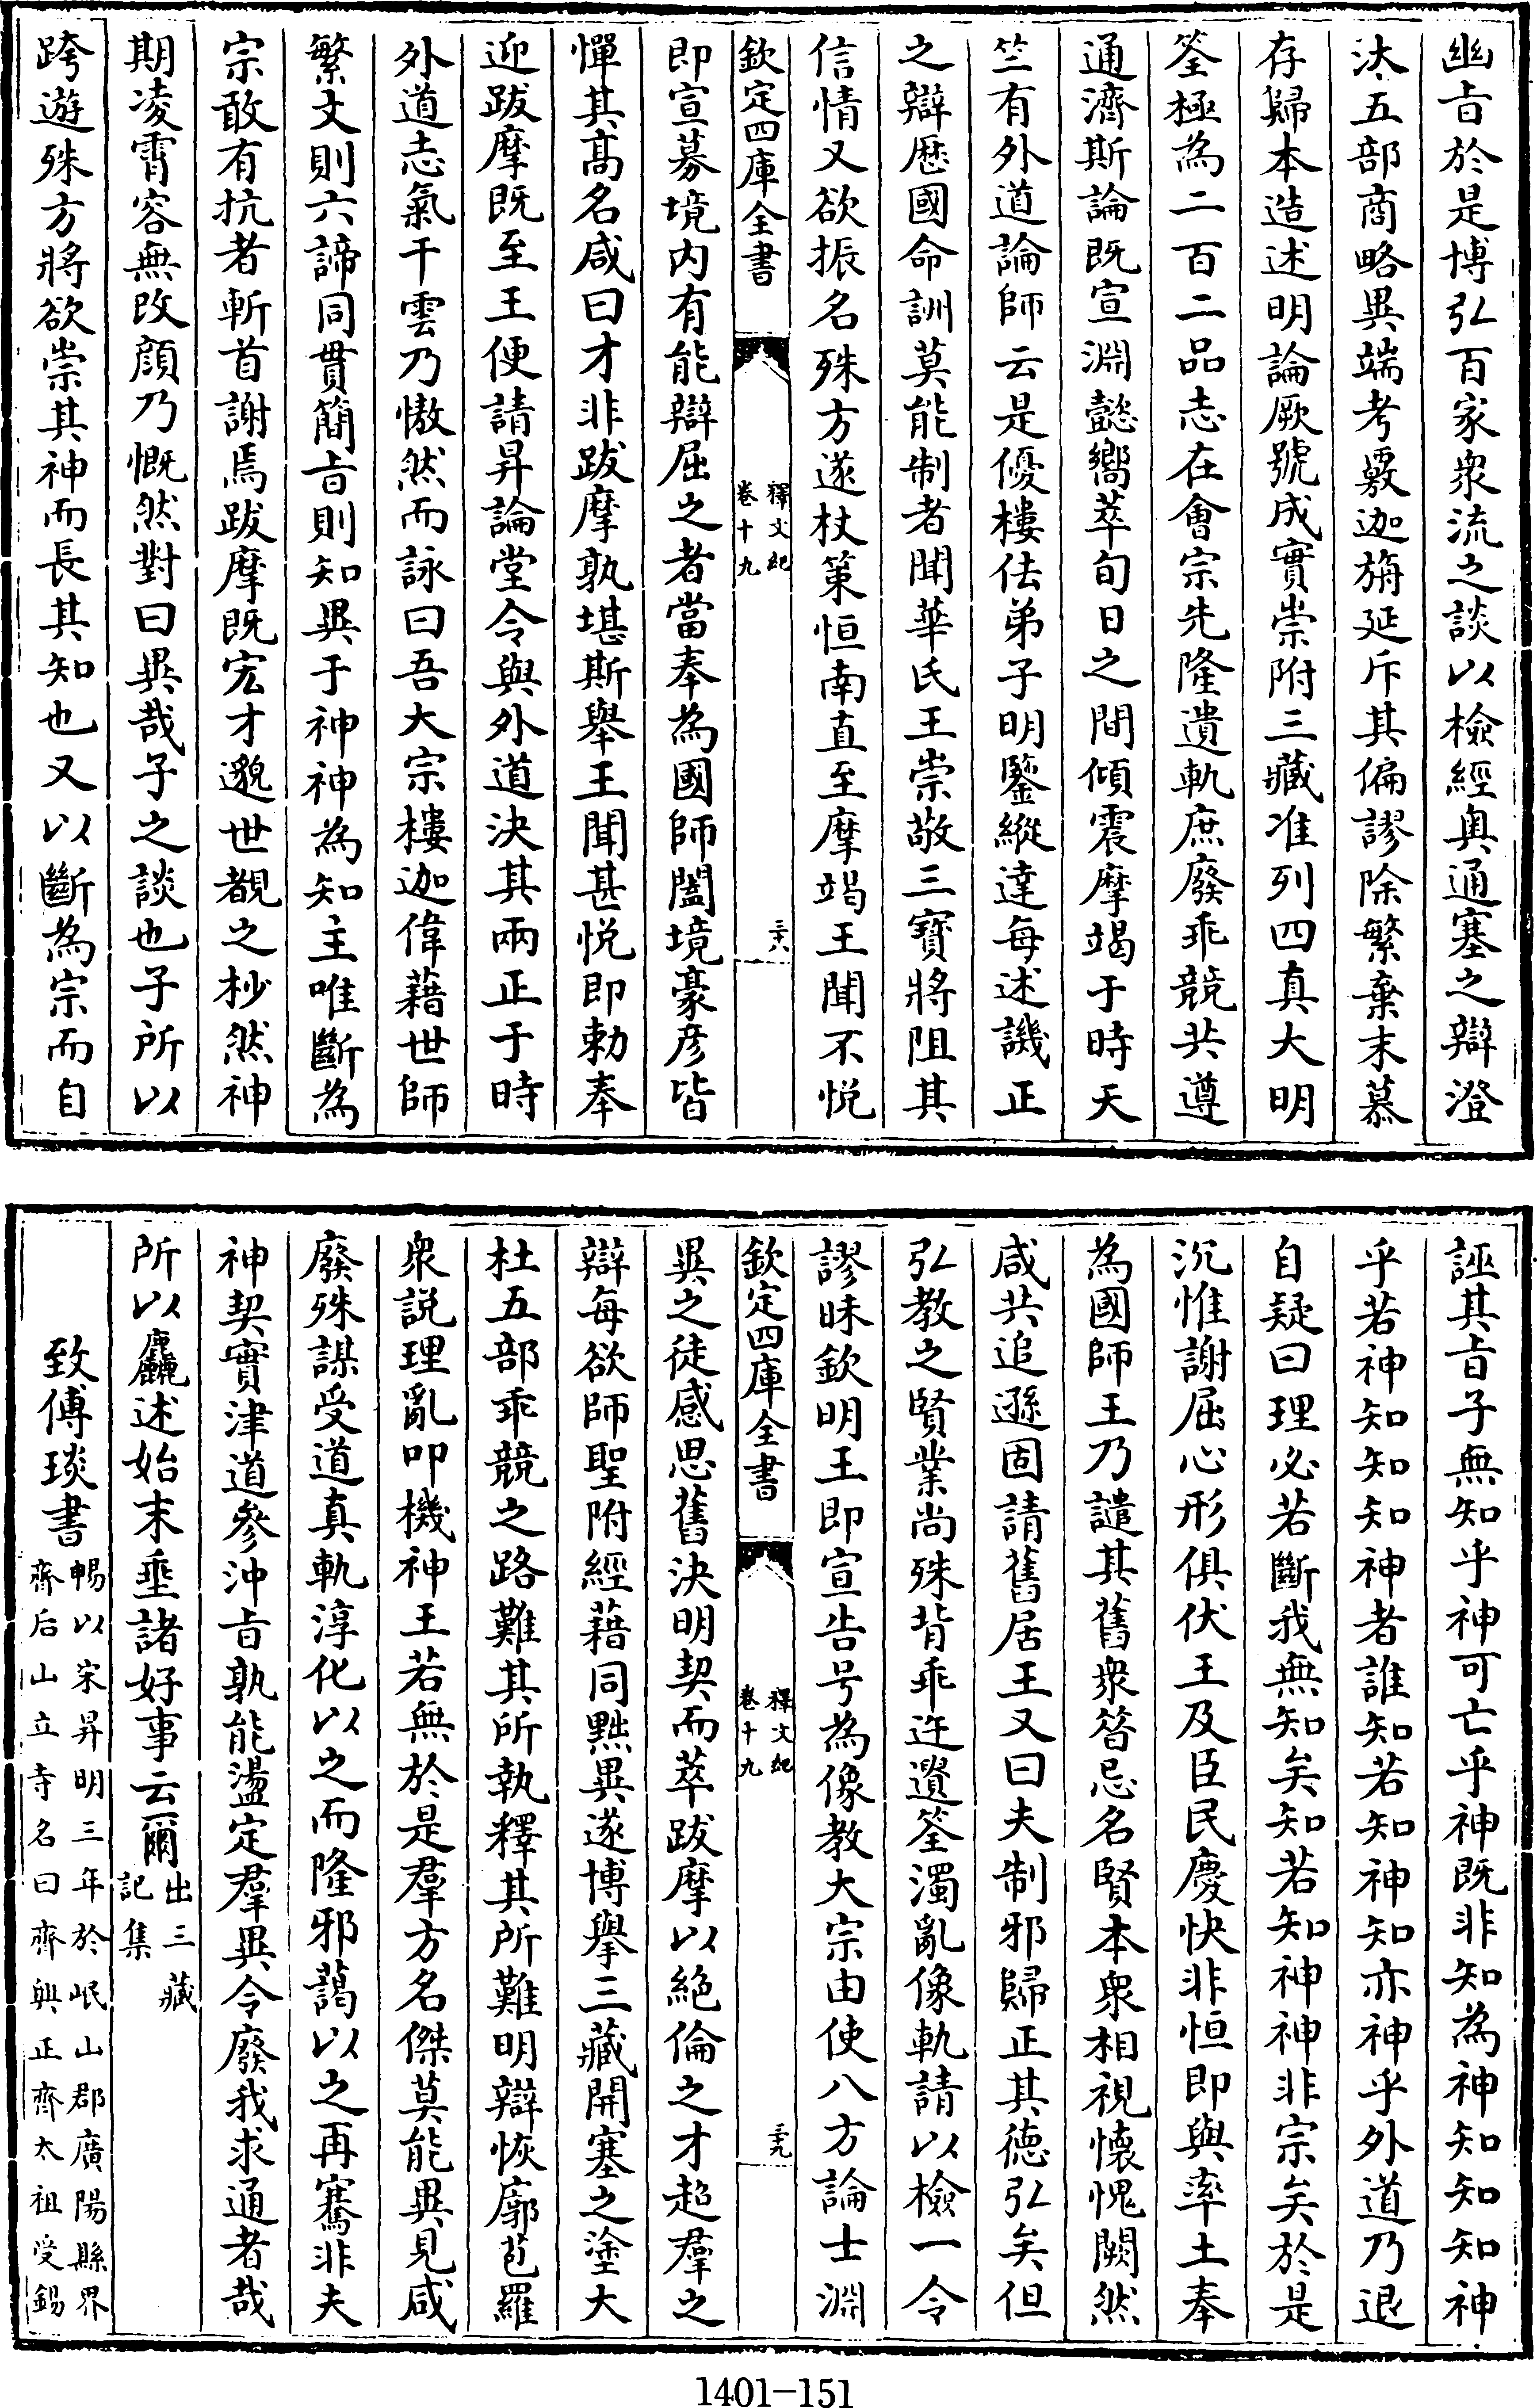 幽㫖於是博弘百家衆流之談以檢經奥通塞之辯澄
汰五部商略異端考覈迦旃延斥其偏謬除繁棄末慕
存歸本造述明論厥號成實崇附三藏准列四真大明
筌極為二百二品志在會宗先隆遺軌庶廢乖競共遵
通濟斯論既宣淵懿嚮萃旬日之間傾震摩竭于時天
竺有外道論師云是優樓佉弟子明鑒縱達每述譏正
之辯歴國命訓莫能制者聞華氏王崇敬三寶將阻其
信情又欲振名殊方遂杖策恒南直至摩竭王聞不悦
欽定四庫全書
釋文紀
卷十九
三十八
即宣募境内有能辯屈之者當奉為國師闔境豪彦皆
憚其髙名咸曰才非跋摩孰堪斯舉王聞甚悦即勅奉
迎跋摩既至王便請昇論堂令與外道決其兩正于時
外道志氣干雲乃傲然而詠曰吾大宗樓迦偉藉世師
繁文則六諦同貫簡㫖則知異于神神為知主唯斷為
宗敢有抗者斬首謝焉跋摩既宏才邈世覩之杪然神
期凌霄容無改顔乃慨然對曰異哉子之談也子所以
跨遊殊方將欲崇其神而長其知也又以斷為宗而自
誣其㫖子無知乎神可亡乎神既非知為神知知知神
乎若神知知知神者誰知若知神知亦神乎外道乃退
自疑曰理必若斷我無知矣知若知神神非宗矣於是
沉惟謝屈心形俱伏王及臣民慶快非恒即與率土奉
為國師王乃譴其舊衆咎忌名賢本衆相視懷愧闕然
咸共追遜固請舊居王又曰夫制邪歸正其德弘矣但
弘教之賢業尚殊背乖迕遺筌濁亂像軌請以檢一令
謬昧欽明王即宣告号為像教大宗由使八方論士淵
欽定四庫全書
釋文紀
卷十九
三十九
異之徒感思舊決明契而萃跋摩以絶倫之才超羣之
辯每欲師聖附經藉同黜異遂博舉三藏開塞之塗大
杜五部乖競之路難其所執釋其所難明辯恢廓苞羅
衆説理亂叩機神王若無於是羣方名傑莫能異見咸
廢殊謀受道真軌淳化以之而隆邪藹以之再騫非夫
神契實津道參沖㫖孰能盪定羣異令廢我求通者哉
所以麤述始末垂諸好事云爾出三藏
記集
致傅琰書暢以宋昇明三年於岷山郡廣陽縣界
齊后山立寺名曰齊興正齊太祖受錫
1401-151